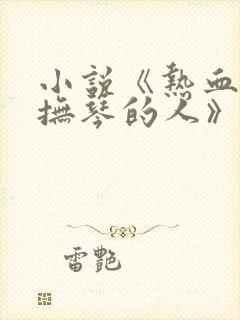 小説《熱血
撫琴的人》
雷艷